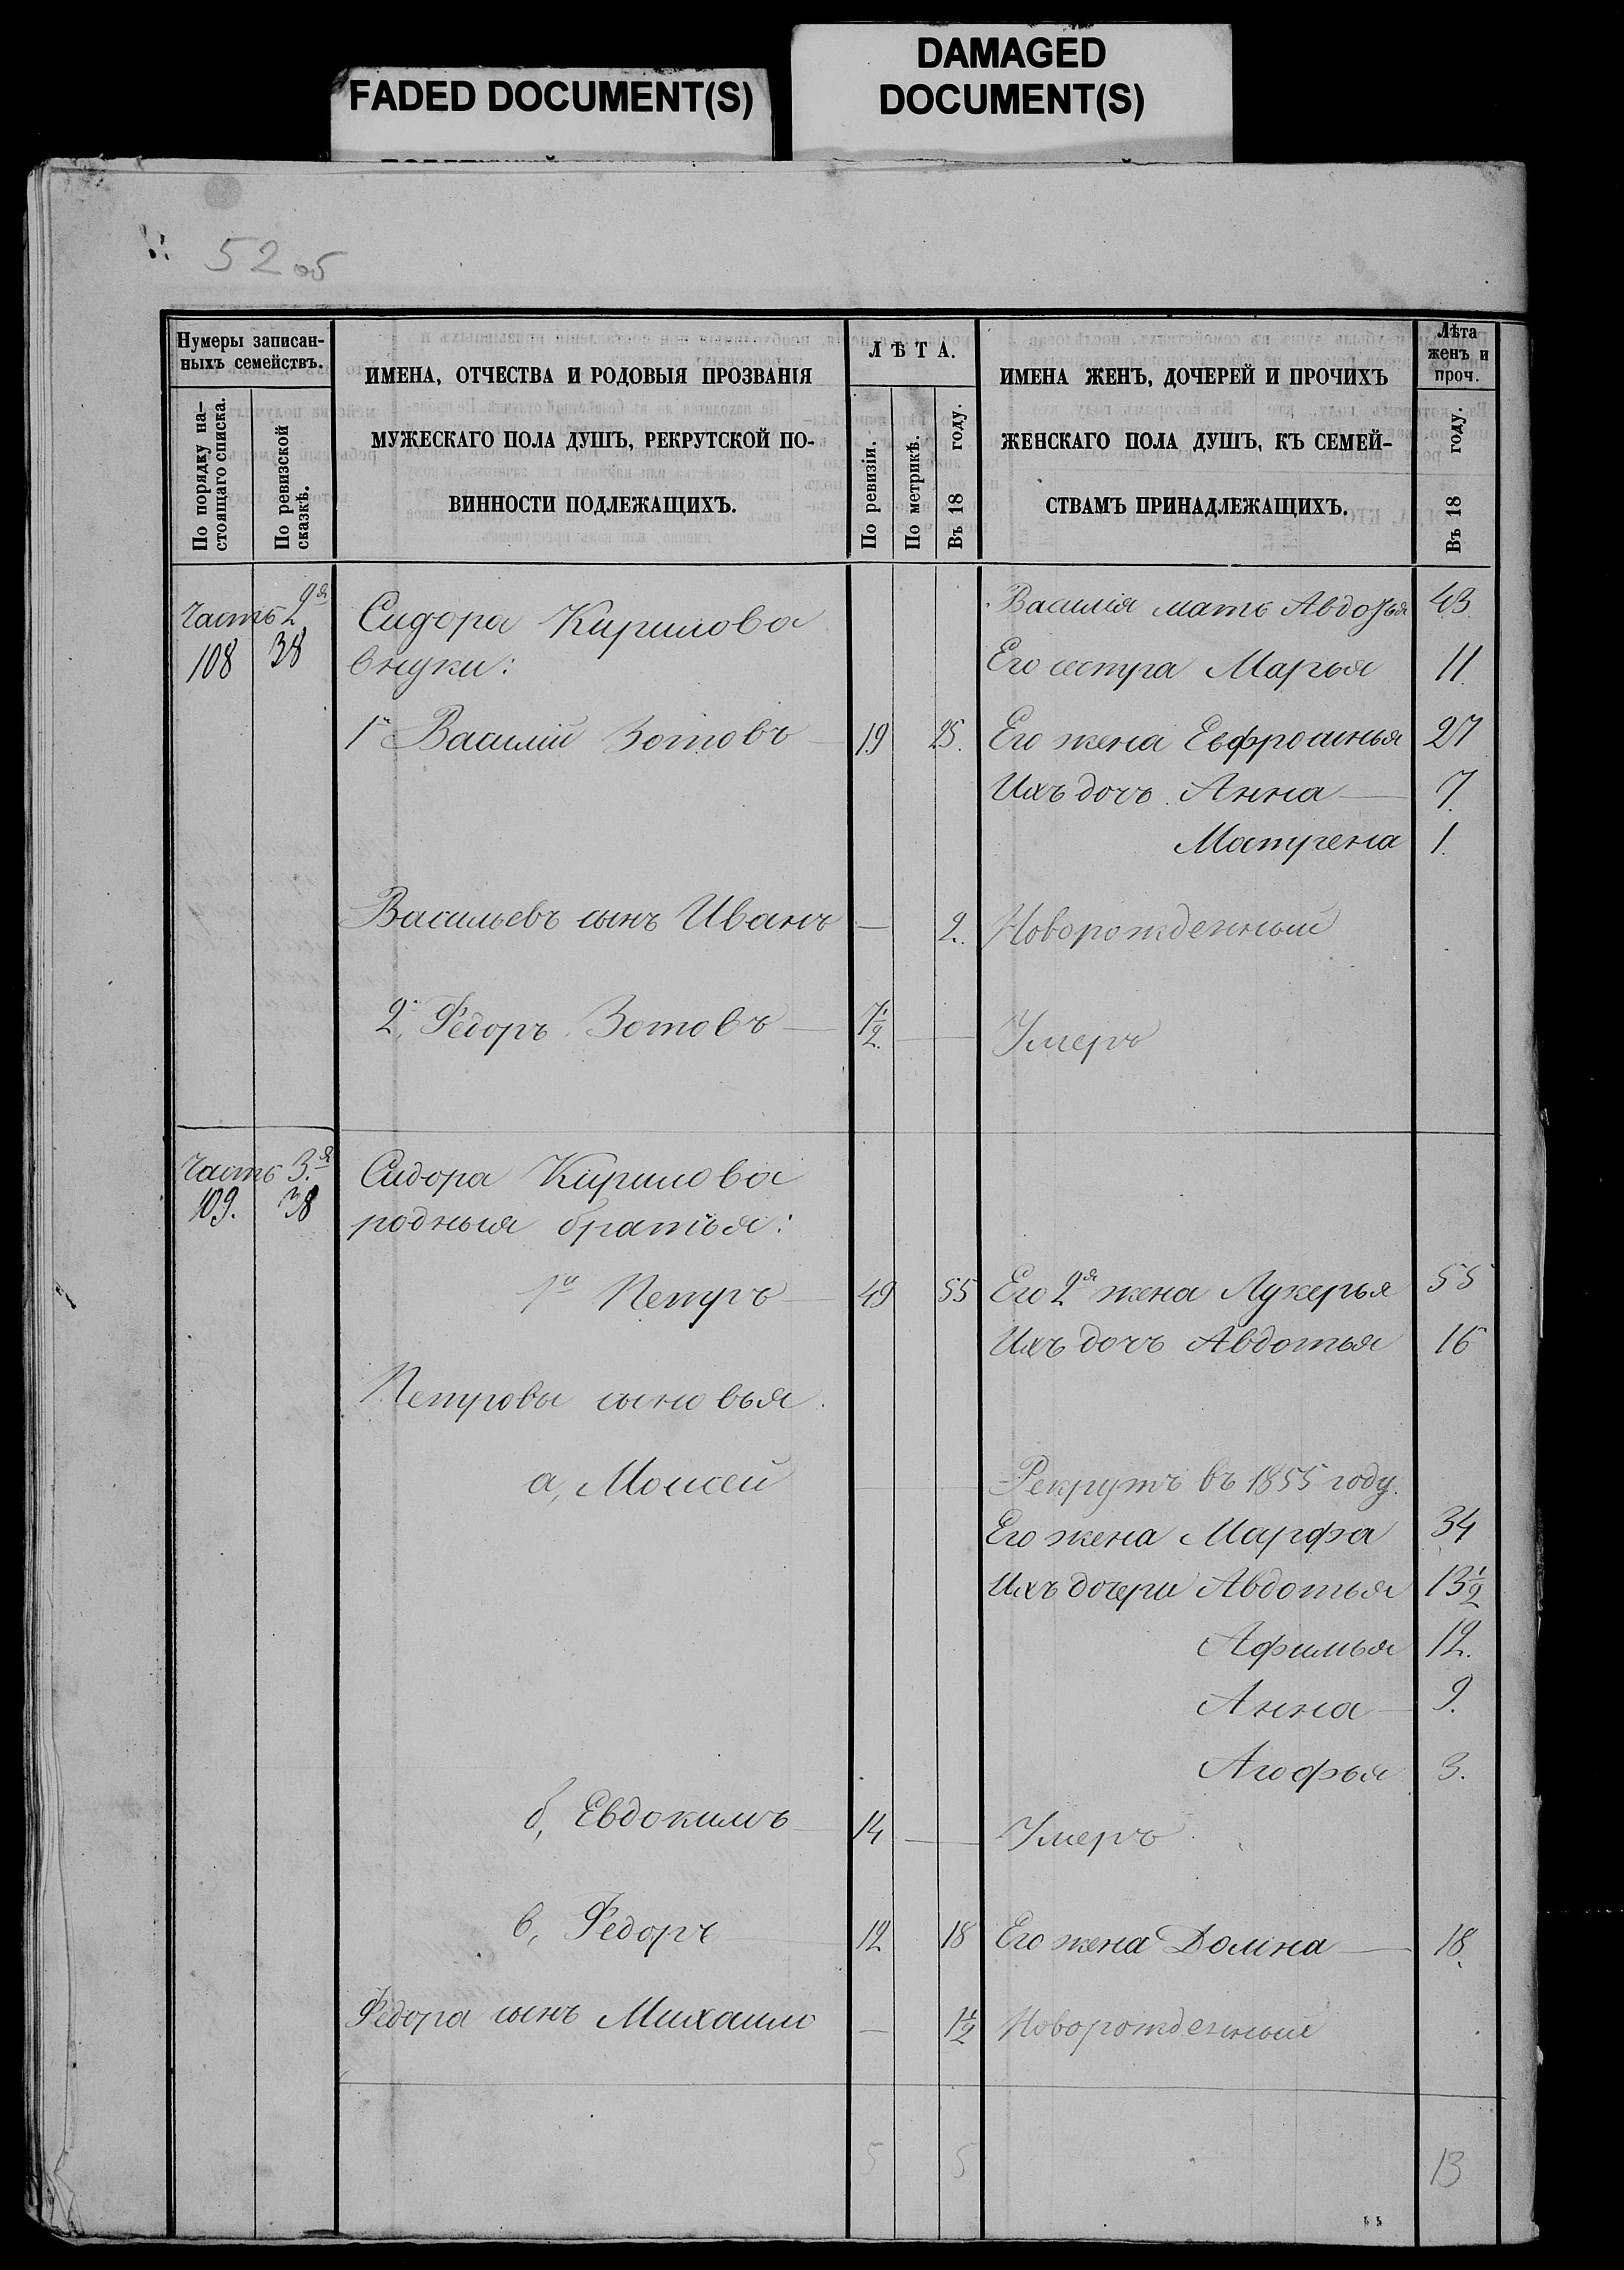 FADED DOCUMENT(S)
DAMAGED
DOCUMENT(S)
52 об
Нумеры записан-
ныхъ семействъ.
По порядку на-
стоящаго списка.
По ревизской
сказкѣ.
ИМЕНА, ОТЧЕСТВА И РОДОВЫЯ ПРОЗВАНІЯ
МУЖЕСКАГО ПОЛА ДУШЪ, РЕКРУТСКОЙ ПО-
ВИННОСТИ ПОДЛЕЖАЩИХЪ.
ЛѢТА.
По ревизіи.
По метрикѣ.
Въ 18 году.
ИМЕНА ЖЕНЪ, ДОЧЕРЕЙ И ПРОЧИХЪ
ЖЕНСКАГО ПОЛА ДУШЪ, КЪ СЕМЕЙ-
СТВАМЪ ПРИНАДЛЕЖАЩИХЪ.
Лѣта
женъ и
проч.
Въ 18 году.
Часть 2я Сидора Кирилова Василія мать Авдотья 43
108 38 внуки: Его сестра Марья 11
1й Василій Зотовъ 19 25. Его жена Евфросинья 27
Ихъ дочь Анна 7.
Матрена 1.
Васильевъ сынъ Иванъ — 2. Новорожденный
2, Федоръ Зотовъ 7½ — Умеръ
Часть 3.я Сидора Кирилова
109. 38 родныя братья:
1й Петръ 49 55 Его 2я жена Лукерья 55
Ихъ дочь Авдотья 16
Петровы сыновья.
а, Моисей — Рекрутъ въ 1855 году.
Его жена Марфа 34
Ихъ дочери Авдотья 13½
Афимья 12.
Анна 9.
Агофья 3.
б, Евдокимъ 14 — Умеръ
в, Федоръ 12 18 Его жена Домна 18
Федора сынъ Михаило — 1½ Новорожденный
5 5 13